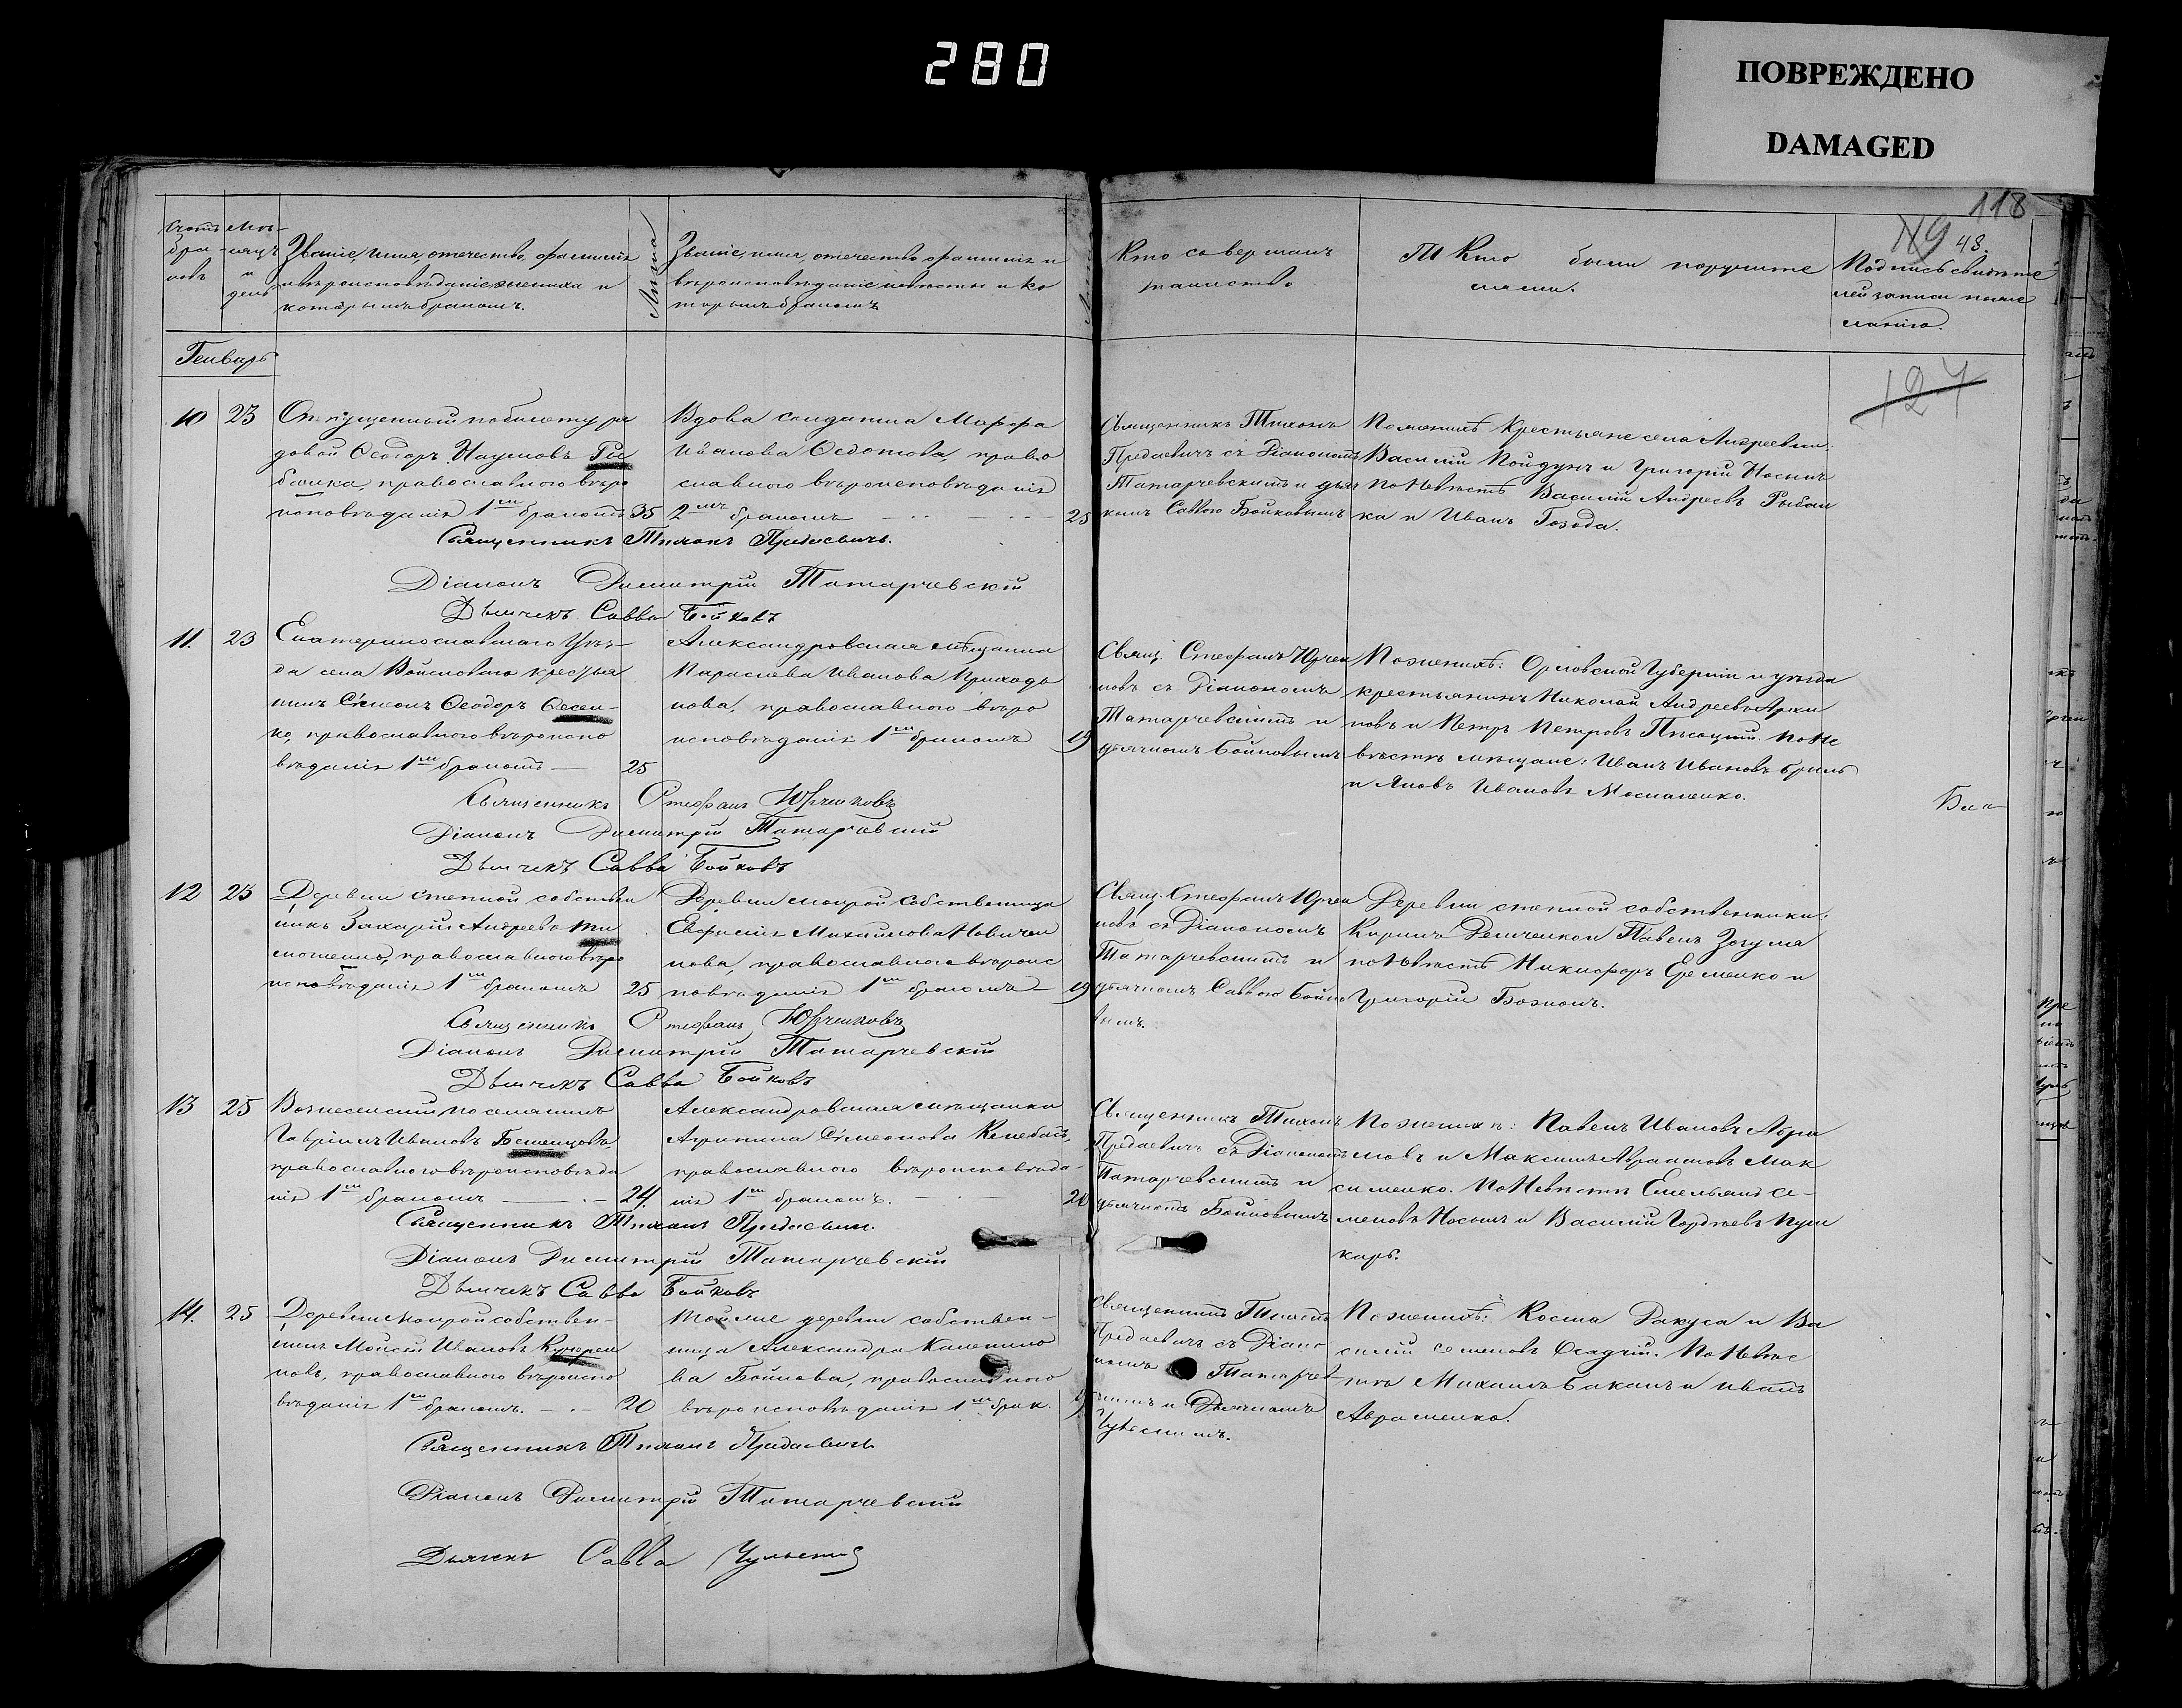 280
ПОВРЕЖДЕНО
DAMAGED
118
48.
Званіе, имя, отечество, фамилія
и вѣроисповѣданіе жениха и
которымъ бракомъ.
Лѣта
Званіе, имя, отечество фамилія и
вѣроисповѣданіе невѣсты и ко
торымъ бракомъ
Кто совершалъ
таинство.
Кто были поручите
лями.
Подпись свидѣте
лей записи по же
ланію.
Генварь
127
10 23 Отпущенный по билету ря
довой Ѳеодоръ Наумовъ
православнаго вѣро
исповѣданія 1мъ бракомъ 35
Вдова солдатка Марфа
Иванова Ѳедотова, право
славнаго вѣроисповѣданія
2мъ бракомъ 25
Священникъ Тихонъ
Предаевичъ съ Діакономъ
Татарчевскимъ и дьяч
комъ Саввою Бойковымъ
По женихѣ крестьяне села Андреевки:
Василій и Григорій Носикъ
по невѣстѣ Василій Андреевъ Рыбал
ка и Иванъ
Священникъ Тихонъ Предаевичъ.
Діаконъ Димитрій Татарчевскій
Дьячекъ Савва Бойковъ
11. 23 Екатеринославскаго Уѣз-
да села Войсковаго крестья
нинъ Сѵмеонъ Ѳеодоръ Ѳесен-
ко, православнаго вѣроиспо
вѣданія 1мъ бракомъ 25
Александровская мѣщанка
Параскева Иванова Приходь
кова, православнаго вѣро
исповѣданія 1мъ бракомъ 19
Свящ. Стефанъ Юрчен
ковъ съ Діакономъ
Татарчевскимъ и
дьячкомъ Бойковымъ
По женихѣ: Орловской Губерніи и уѣзда
крестьянинъ Николай Андреевъ
и Петръ Петровъ Пѣсоцкій. По не
вѣстѣ мѣщане: Иванъ Ивановъ Бриль
и Яковъ Ивановъ Москаленко.
Священникъ Стефанъ Юрченковъ
Діаконъ Димитрій Татарчевскій
Дьячекъ Савва Бойковъ
12 23 Деревни степной собствен
никъ Захарій Андреевъ Ти
мошенко, православнаго вѣро
исповѣданія 1мъ бракомъ 25
Деревни мокрой собственница
Евфимія Михайлова Новичен
кова, православнаго вѣроис
повѣданія 1мъ бракомъ 19
Свящ. Стефанъ Юрчен
ковъ съ Діакономъ
Татарчевскимъ и
дьячкомъ Саввою Бойко
вымъ.
Деревни степной собственники:
Кирилъ Демченко и Павелъ Зозуля
по невѣстѣ Никифоръ Еременко и
Григорій
Священникъ Стефанъ Юрченковъ
Діаконъ Димитрій Татарчевскій
Дьячекъ Савва Бойковъ
13 25 Вознесенскій поселянинъ
Гавріилъ Ивановъ
православнаго вѣроисповѣда
нія 1мъ бракомъ 24.
Александровская мѣщанка
Агрипина Сѵмеонова
православнаго вѣроисповѣда
нія 1мъ бракомъ.
Священникъ Тихонъ
Предаевичъ съ Діакономъ
Татарчевскимъ и
дьячкомъ Бойковымъ
По женихѣ: Павелъ Ивановъ Абра
мовъ и Максимъ Авраамовъ Мак
сименко. По невѣстѣ Емельянъ Се-
меновъ Носикъ и Василій Гордѣевъ Пуш
карь.
Священникъ Тихонъ Предаевичъ.
Діаконъ Димитрій Татарчевскій
Дьячекъ Савва Бойковъ
14. 25 Деревни мокрой собствен-
никъ Моисей Ивановъ Кучерен
ковъ, православнаго вѣроиспо
вѣданія 1мъ бракомъ. 20
Той же деревни собствен-
ница Александра
Бойкова, православнаго
вѣроисповѣданія 1мъ брак.
Священникъ Тихонъ
Предаевичъ съ Діако
номъ Татарчев
скимъ и Дьячкомъ
По женихѣ: Косма Ракуса и Ва
силій Семеновъ Осадчій. По невѣс
тѣ Михаилъ Баканъ и Иванъ
Авраменко.
Священникъ Тихонъ Предаевичъ
Діаконъ Димитрій Татарчевскій
Дьячекъ Савва